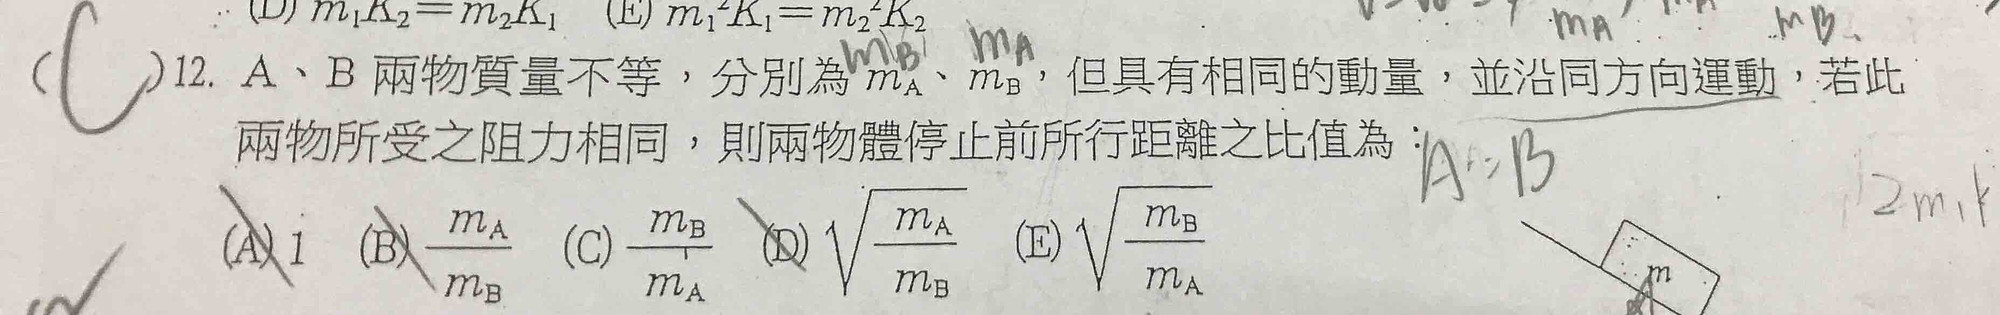 (D) m₁K₂＝m₂K₁ (E) m₁²K₁＝m₂²K₂
mA mB
mB mA
(C)12. A、B 兩物質量不等，分別為 mA、mB，但具有相同的動量，並沿同方向運動，若此
兩物所受之阻力相同，則兩物體停止前所行距離之比值為：
A:B
(A) 1 (B) mA/mB (C) mB/mA (D) √(mA/mB) (E) √(mB/mA)
m